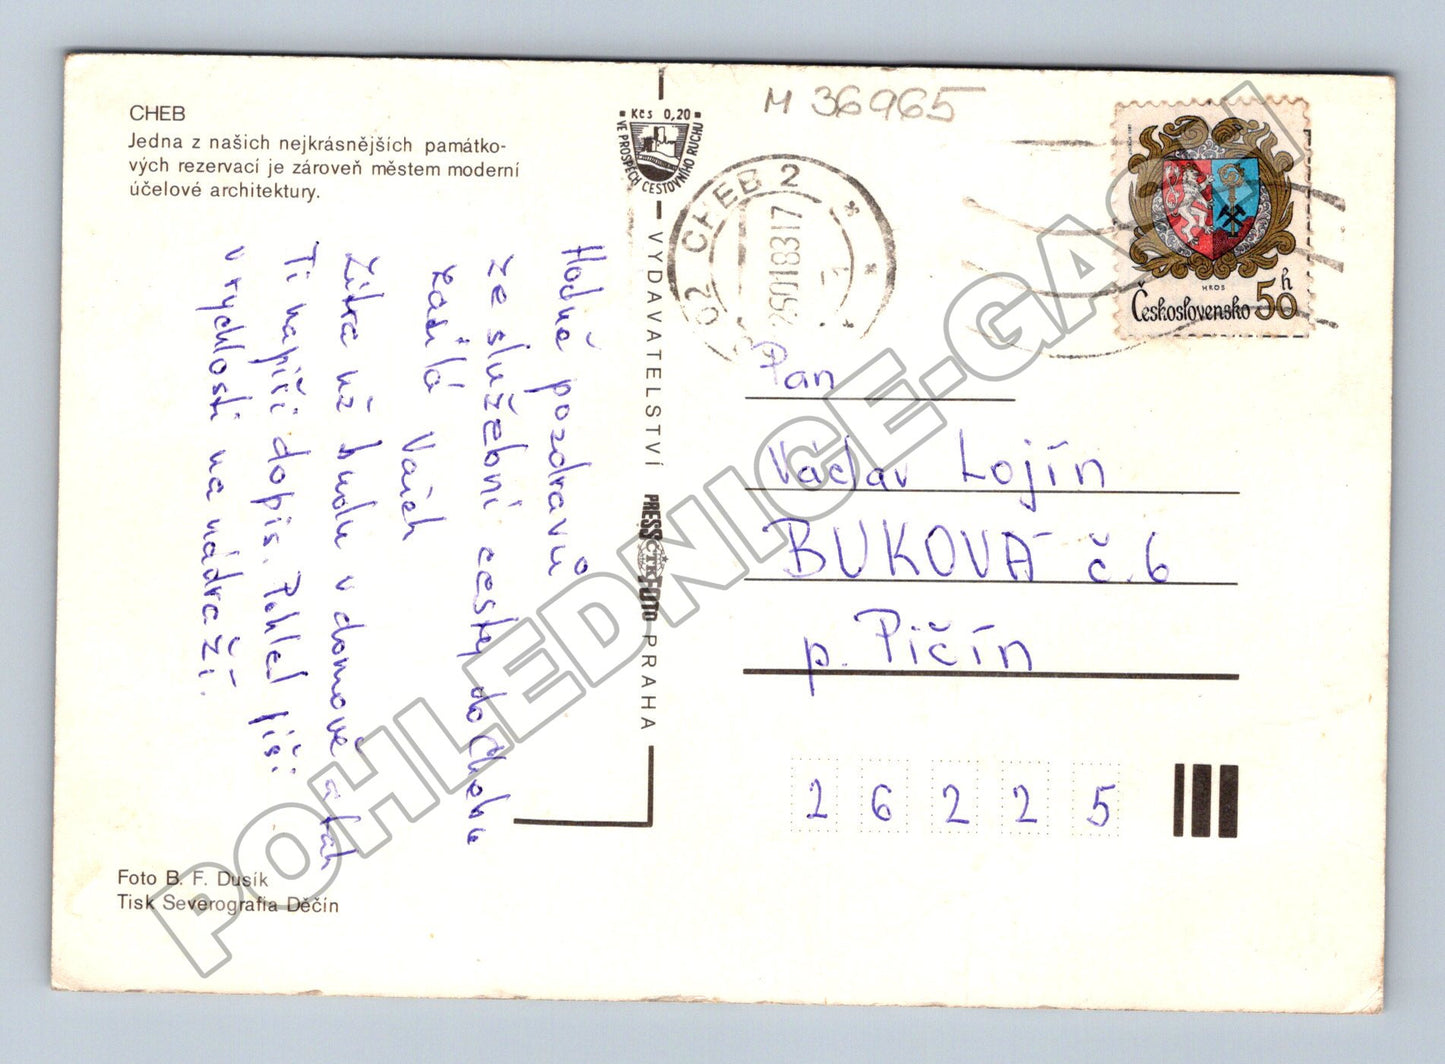 CHEB
Jedna z našich nejkrásnějších památko-
vých rezervací je zároveň městem moderní
účelové architektury.
Hodně pozdravů
ze služební cesty do Chebu
zasílá Vašek
Zítra už budu v domově a tak
Ti napíši dopis. Pohled píši
v rychlosti na nádraží.
Foto B. F. Dusík
Tisk Severografia Děčín
Kčs 0,20
VE PROSPĚCH CESTOVNÍHO RUCHU
VYDAVATELSTVÍ PRESSFOTO PRAHA
ČTK
M 36965
CHEB 2
02
HROS
Československo 50 h
Pan
Václav Lojín
BUKOVÁ č. 6
p. Pičín
26225
POHLEDNICE-GASU